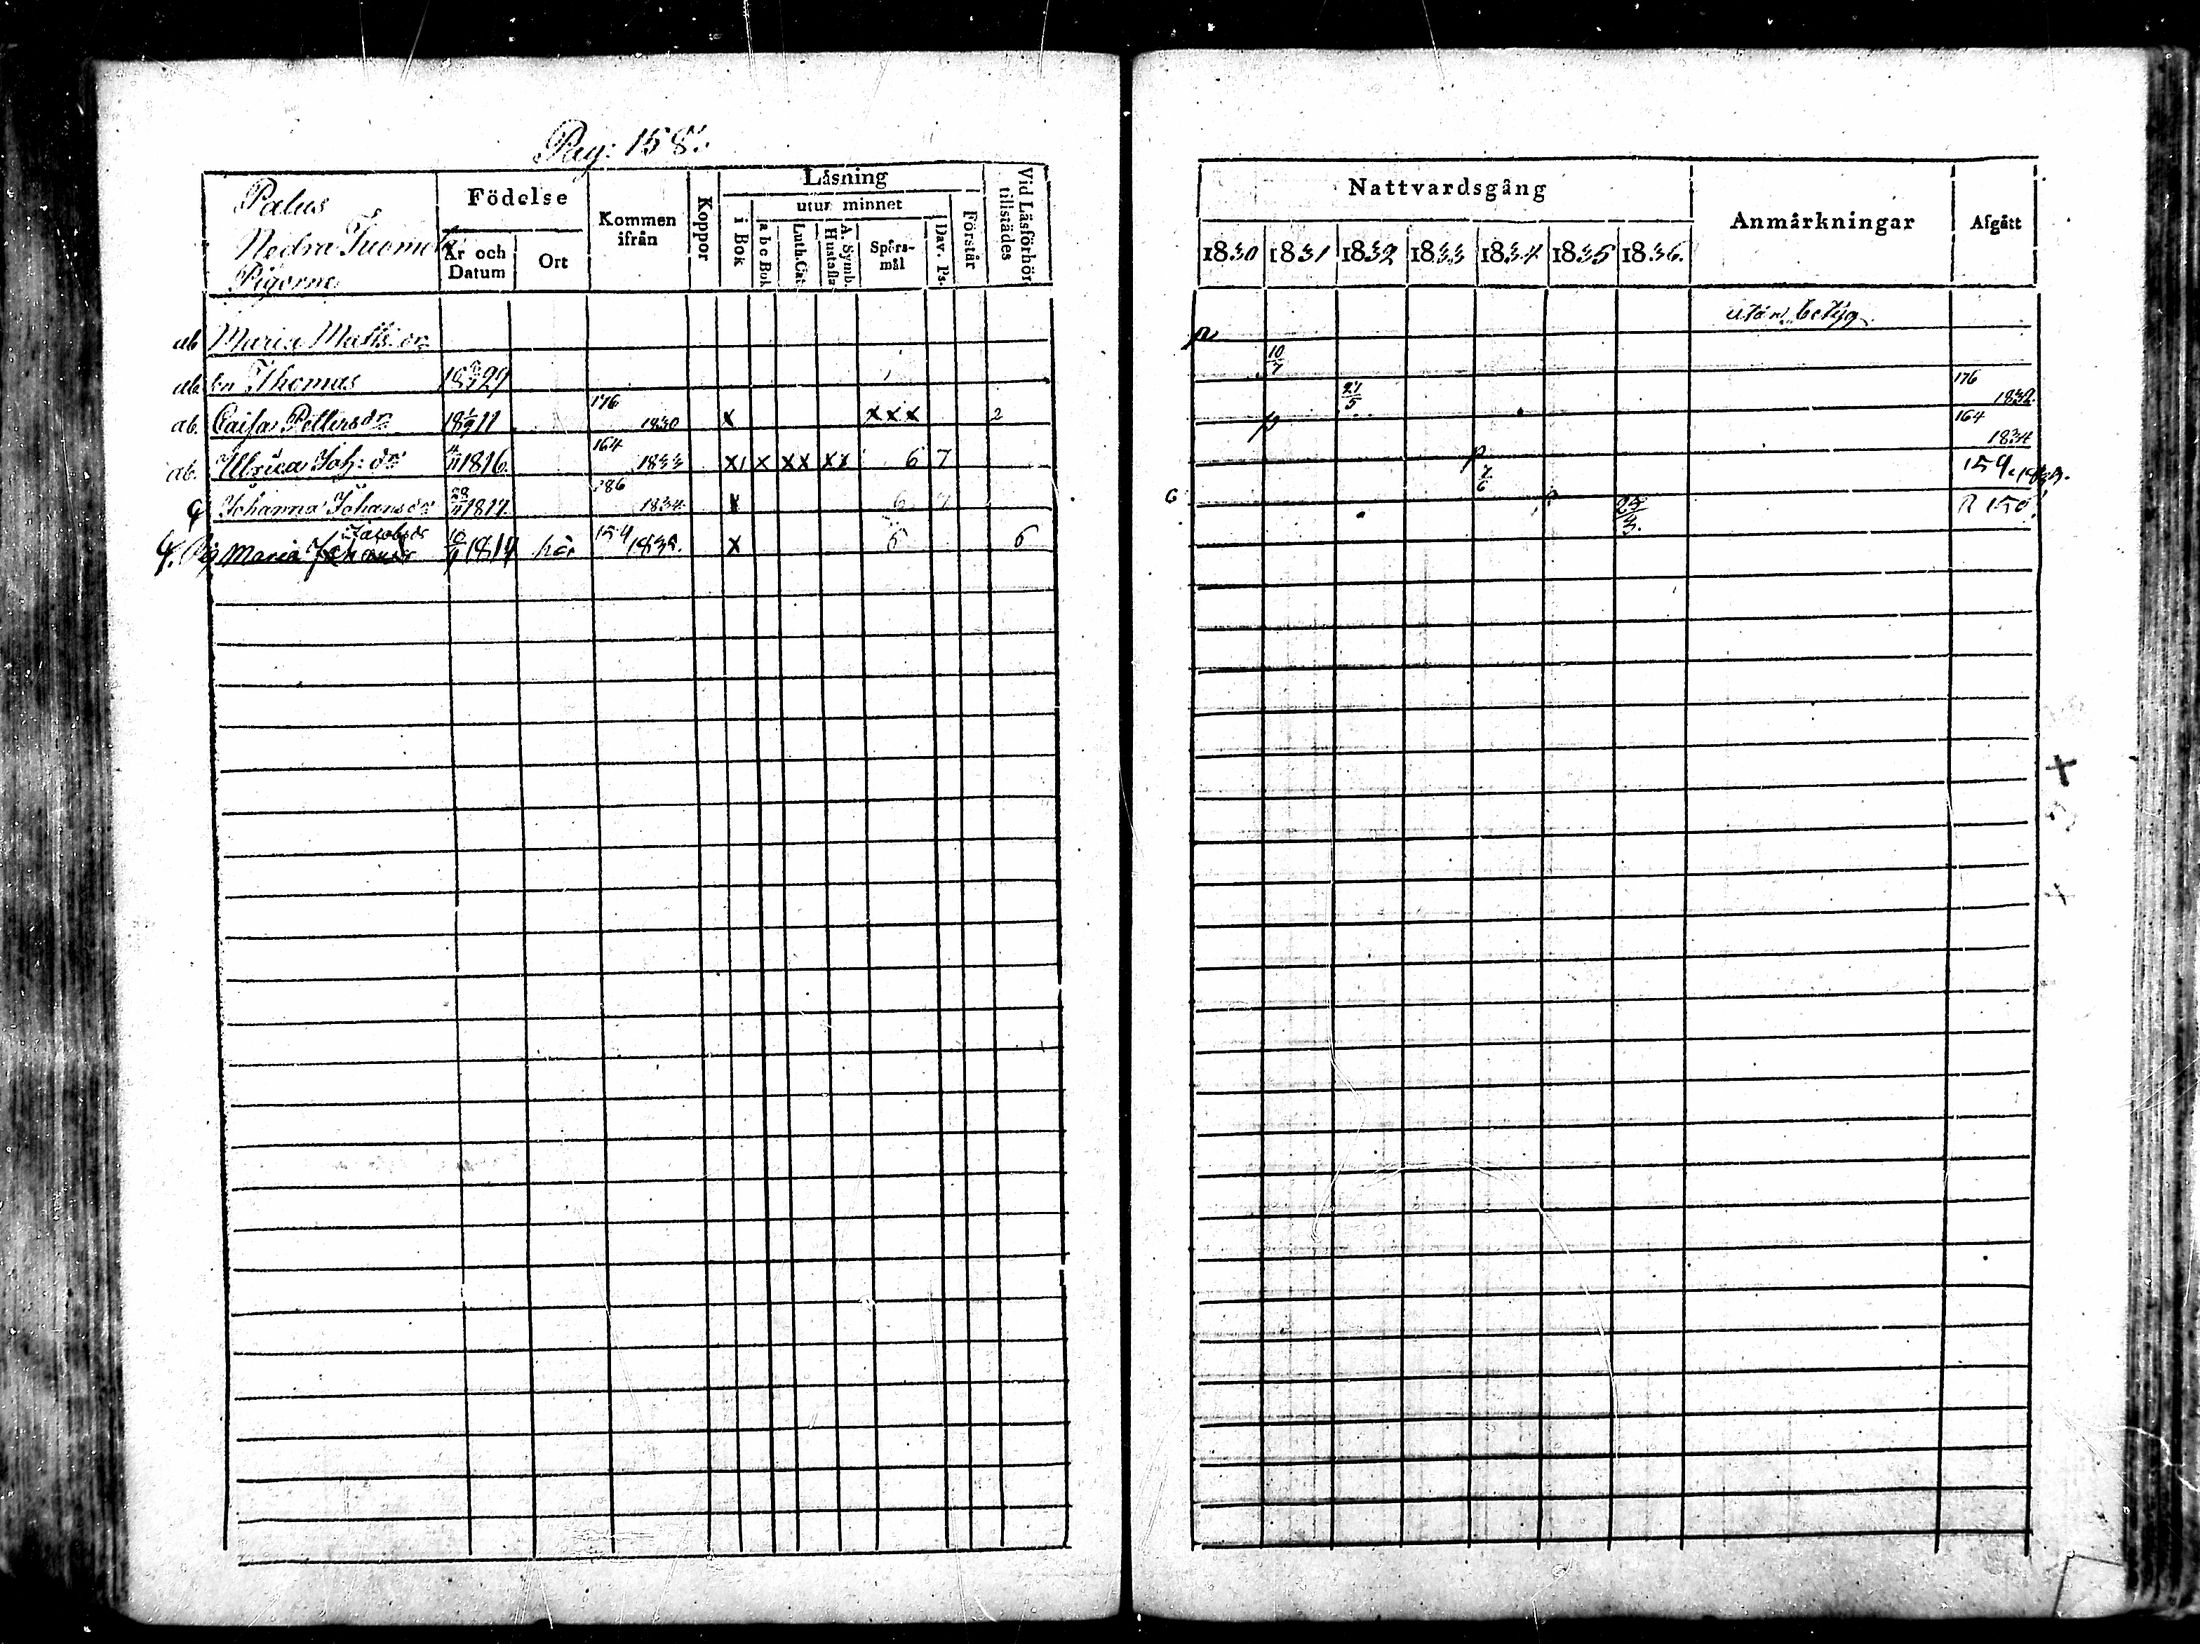 Pag: 158.
Palus
Nedra Tuomola
Pigorne
Födelse
År och Datum
Ort
Kommen ifrån
Koppor
Läsning
i Bok
utur minnet
a b c Bok
Luth. Cat.
A. Symb. Hustafla
Spörs-mål
Dav. Ps.
Förstår
Vid Läsförhör tillstädes
Nattvardsgång
1830 1831 1832 1833 1834 1835 1836.
Anmärkningar
Afgått
ab Maria Matts dr utan betyg
p
ab Thomas 29
10/7
ab. Caisa Petters dr 18 11 176 1830 x xxx 2 21/5 176 1832
ab. Ulrica Joh: dr 1816. 164 1833 x x xx xx 6 7 p 164 1834
Johanna Johans dr 28/11 1817. 1834. x 6 7 p 7/6 159.
6
Maria Johansdr Jacobsdr 1814 här 154 1835. x 6 6 150